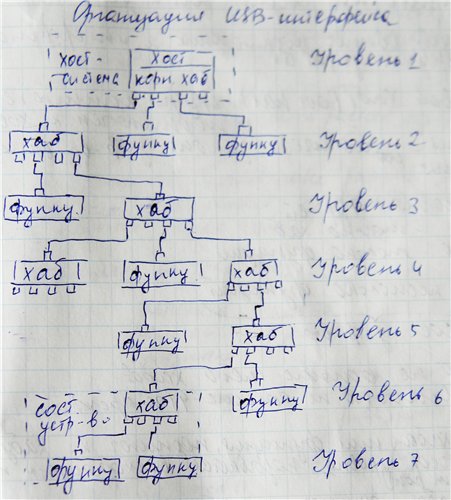 Организация USB-интерфейса
хост-система
хост
корн хаб
Уровень 1
хаб
функц
функц
Уровень 2
функц.
хаб
Уровень 3
хаб
функц
хаб
Уровень 4
функц
хаб
Уровень 5
сост. устр-во
хаб
функц
Уровень 6
функц.
функц
Уровень 7